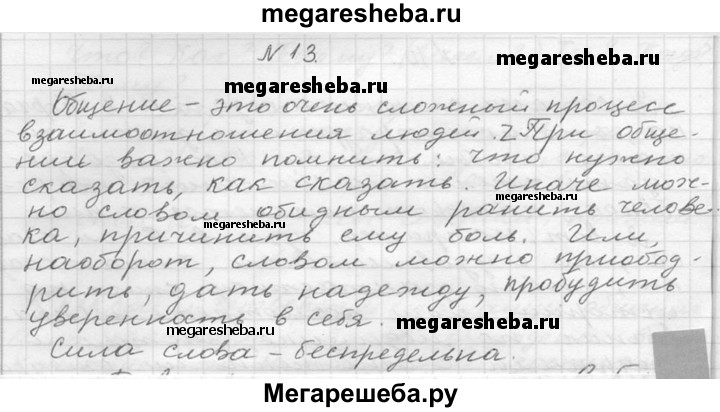 megaresheba.ru
N 13.
megaresheba.ru
megaresheba.ru
Общение – это очень сложный процесс
взаимоотношения людей. Z При обще-
нии важно помнить: что нужно
megaresheba.ru
сказать, как сказать. Иначе мож-
но словом обидным ранить челове-
megaresheba.ru
ка, причинить ему боль. Или,
наоборот, словом можно приобод-
рить, дать надежду, пробудить
уверенность в себе.
megaresheba.ru
megaresheba.ru
Сила слова – беспредельна.
Мегарешеба.ру